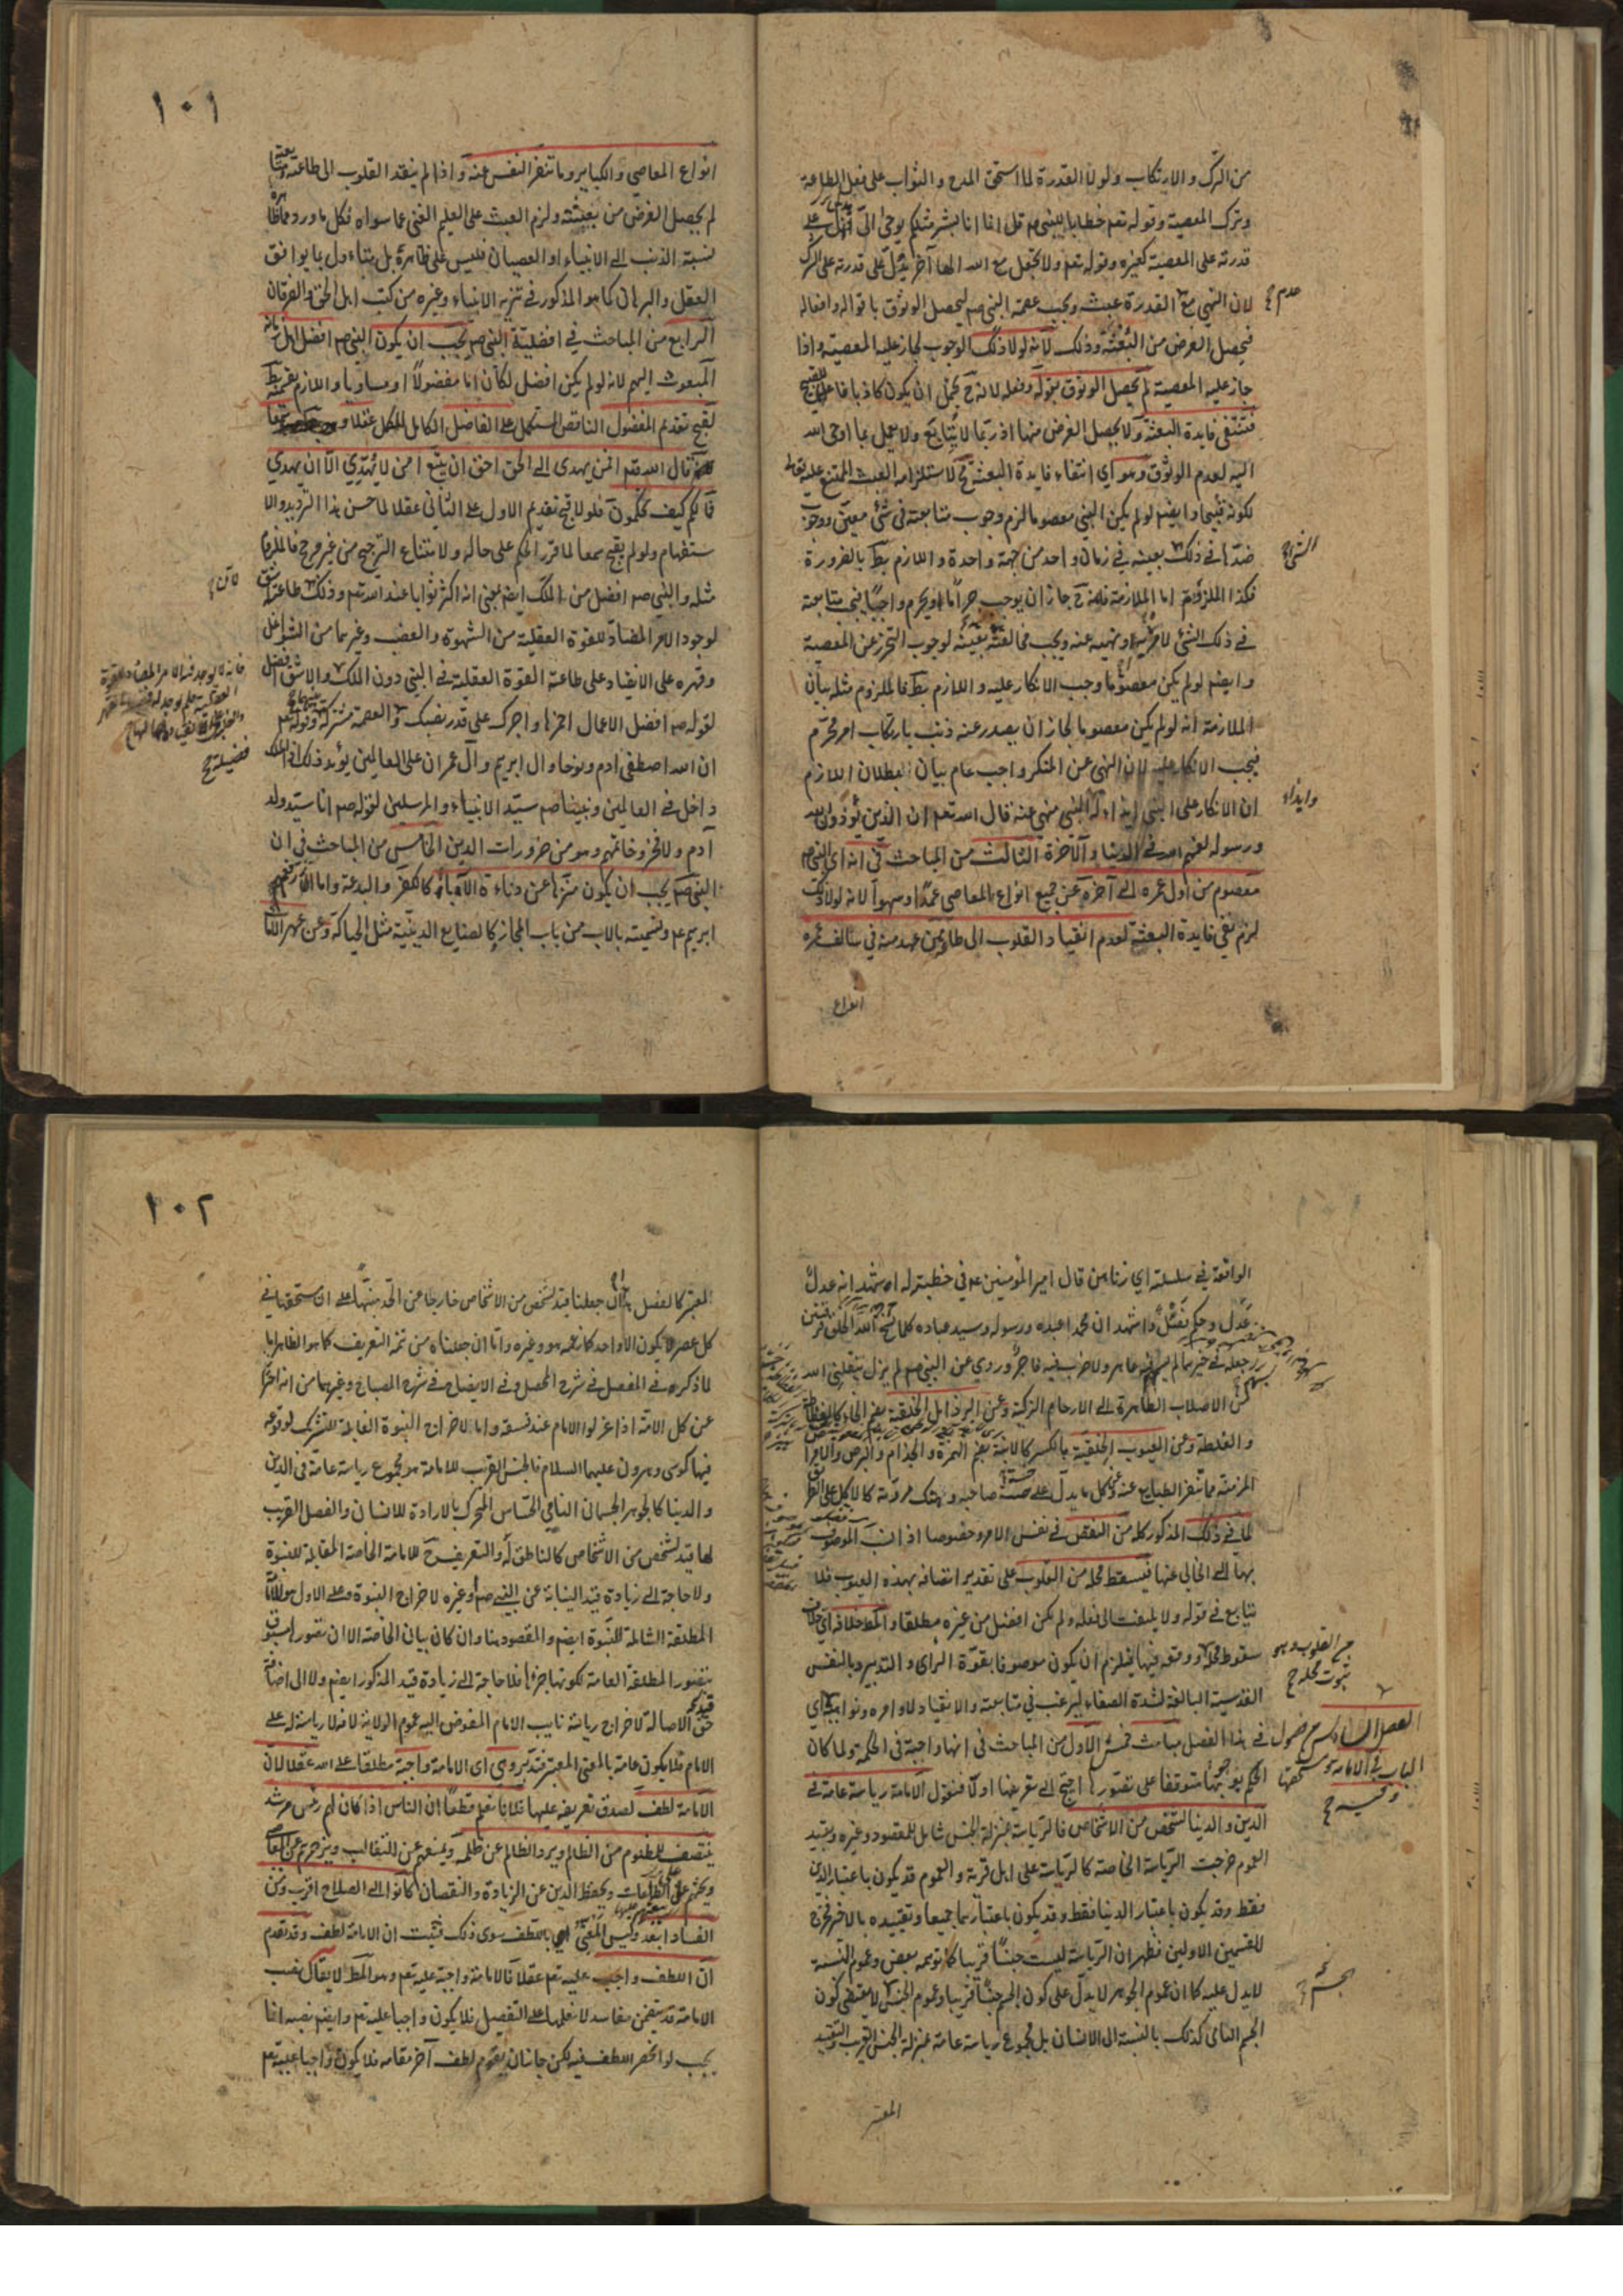 من الترك والارتكاب ولولا القدرة لما استحق المدح والثواب على فعل الطاعة
وترك المعصية وقوله تعم خطابا للنبي صم قل انما انا بشر مثلكم يوحى الىّ يدل على
قدرته على المعصية كغيره وقوله تعم ولا تجعل مع الله الها آخر يدل على قدرته على الشرك
لان النهي مع عدم القدرة عبث ويجب عصمة النبي صم ليحصل الوثوق باقواله وافعاله
فيحصل الغرض من البعثة وذلك لانه لولا ذلك الوجوب لجاز عليه المعصية واذا
جاز عليه المعصية لم يحصل الوثوق بقوله وفعله لانه ح يحتمل ان يكون كاذبا فاعلا للقبيح
فتنتفى فايدة البعثة ولا يحصل الغرض منها اذ ربما لا يتابع ولا يعمل بما اوحى الله
اليه لعدم الوثوق وهو اى انتفاء فايدة البعثة مح لاستلزامه العبث الممتنع عليه تعالى
لكونه قبيحا وايضم لو لم يكن النبي معصوما لزم وجوب متابعته فى شئ معين ووجوب
ضدها فى ذلك بعينه فى زمان واحد من جهة واحدة واللازم بط بالضرورة
فكذا الملزوم اما الملازمة فلانه ح جاز ان يوجب حراما او يحرم واجبا فيجب متابعته
فى ذلك الشئ لامره ونهيه عنه ويجب مخالفته بعينه لوجوب التحرز عن المعصية
وايضم لو لم يكن معصوما وجب الانكار عليه واللازم بط فالملزوم مثله بيان
الملازمة انه لو لم يكن معصوما لجاز ان يصدر عنه ذنب بارتكاب امر محرم
فيجب الانكار عليه لان النهى عن المنكر واجب عام بيان بطلان اللازم
ان الانكار على النبي ايذاء له وايذاء النبي منهى عنه قال الله تعم ان الذين يؤذون الله
ورسوله لعنهم الله فى الدنيا والآخرة الثالث من المباحث فى انه اى النبي صم
معصوم من اول عمره الى آخره عن جميع انواع المعاصى عمدا وسهوا لانه لولا ذلك
لزم نفى فايدة البعثة لعدم انقياد القلوب الى طاعة من عهد منه فى سالف عمره
انواع
١٠١
انواع المعاصى والكباير وما تنفر النفس عنه واذا لم ينقد القلوب الى طاعته ومتابعته
لم يحصل الغرض من بعثته ولزم العبث على العليم الغنى عما سواه فكل ما ورد مما ظاهره
نسبة الذنب الى الانبياء او العصيان فليس على ظاهره بل يتناول بما يوافق
العقل والبرهان كما هو المذكور فى تنزيه الانبياء وغيره من كتب اهل الحق والفرقان
الرابع من المباحث فى افضلية النبي صم يجب ان يكون النبي صم افضل اهل زمانه
المبعوث اليهم لانه لو لم يكن افضل لكان اما مفضولا او مساويا واللازم بقسميه بط
لقبح تقديم المفضول الناقص المستكمل على الفاضل الكامل المكمل عقلا وسمعا
قال الله تعم افمن يهدى الى الحق احق ان يتبع امن لا يهدّى الّا ان يهدى
فما لكم كيف تحكمون فلولا قبح تقديم الاول على الثانى عقلا لما حسن هذا الترديد والا
ستفهام ولو لم يقبح سمعا لما قرر الحكم على حاله ولامتناع الترجيح من غير مرجح فالملزوم
مثله والنبي صم افضل من الملك ايضم بمعنى انه اكثر ثوابا عند الله تعم وذلك لان طاعته اشق
لوجود الامر المضاد للقوة العقلية من الشهوة والغضب وغيرهما من الشواغل
وقهره على الانقياد على طاعة القوة العقلية فى النبي دون الملك والاشق افضل
لقوله صم افضل الاعمال احمزها واجرك على قدر نصبك والعصمة مشتركة بينهما وقوله تعم
ان الله اصطفى آدم ونوحا وال ابرهيم وآل عمران على العالمين يؤيد ذلك اذ الملك
داخل فى العالمين ونبينا صم سيد الانبياء والمرسلين لقوله صم انا سيد ولد
آدم ولا فخر وخاتمهم وهو من ضرورات الدين الخامس من المباحث فى ان
النبي صم يجب ان يكون منزها عن دناءة الآباء كالكفر والبدعة واما آزر فعم
ابرهيم عم وتسميته بالاب من باب المجاز كالصنايع الدينية مثل الحياكة وعن عهر الامهات
فضيلة ح
الواقعة فى سلسلته اى زنا هن قال امير المؤمنين عم فى خطبة له اشهد انه عدل
عدل وحكم فصل واشهد ان محمدا عبده ورسوله وسيد عباده كلما نسخ الله الخلق فرقتين
جعله فى خيرهما لم يسهم فيه عاهر ولا ضرب فيه فاجر وروى عن النبي صم لم يزل ينقلنى الله
من الاصلاب الطاهرة الى الارحام الزكية وعن الرذايل الخلقية بضم الخاء كالفظاظة
والغلظة وعن العيوب الخلقية بالكسر كالابنة بضم الهمزة والجذام والبرص والامراض
المزمنة مما ينفر الطبايع عنه وعن كل ما يدل على خسة صاحبه وهتك مروته كالاكل على الطريق
لما فى ذلك المذكور كله من النقص فى نفس الامر وخصوصا اذ انسب الموصوف
بها الى الخالى عنها فيسقط محله من القلوب على تقدير اتصافه بهذه العيوب فلا
يتابع فى قوله ولا يلتفت الى فعله ولم يكن افضل من غيره مطلقا والمط خلافه اى خلاف
سقوط محله ووقعه فيها فيلزم ان يكون موصوفا بقوة الراى والتدبير وبالنفس
القدسية البالغة لشدة الصفاء ليرغب فى متابعته والانقياد لاوامره ونواهيه
من القلوب وهو
ثبوت محله ح
الفصل السادس من فصول فى هذا الفصل مباحث خمس الاول من المباحث فى انها واجبة فى الحكمة ولما كان
الباب فى الامامة الحكم بوجوبها متوقفا على تصورها احتج الى تعريفها اولا فنقول الامامة رياسة عامة فى
الدين والدنيا لشخص من الاشخاص فالرياسة بمنزلة الجنس شامل للمقصود وغيره وبقيد
العموم خرجت الرياسة الخاصة كالرياسة على اهل قرية والعموم قد يكون باعتبار الدين
فقط وقد يكون باعتبار الدنيا فقط وقد يكون باعتبارهما جميعا وتقييده بالاخر مخرج
للقسمين الاولين فظهر ان الرياسة ليست جنسا قريبا كما توهمه بعض وعموم النسبة
لا يدل عليه كما ان عموم الجوهر لا يدل على كون الجسم جنسا قريبا وعموم الجنس لا يقتضى كون
الجسم النامى كذلك بالنسبة الى الانسان بل مجموع رياسة عامة بمنزلة الجنس القريب والتقييد
المعتبر
١٠٢
المعتبر كالفصل ان جعلنا قيد لشخص من الاشخاص خارجا عن الحد منبها على ان مستحقها فى
كل عصر لا يكون الا واحد كما زعمه هو وغيره واما ان جعلناه من تتمة التعريف كما هو الظاهر بما
لما ذكره فى المفصل فى شرح المحصل وفى الايضاح فى شرح المصباح وغيرهما من انه احترز
عن كل الامة اذا عزلوا الامام عند فسقه واما لاخراج النبوة القابلة للشرك لوقوعه
فيها كموسى وهرون عليهما السلام فالجنس القريب للامامة هو مجموع رياسة عامة فى الدين
والدنيا كالجوهر الجسمانى النامى الحساس المتحرك بالارادة للانسان والفصل القريب
لها قيد لشخص من الاشخاص كالناطق له والتعريف ح للامامة الخاصة المقابلة للنبوة
ولا حاجة الى زيادة قيد النيابة عن النبي صم او غيره لاخراج النبوة وعلى الاول هو للامامة
المطلقة الشاملة للنبوة ايضم والمقصود هنا وان كان بيان الخاصة الا ان تصورها مسبوق
بتصور المطلقة العامة لكونها جزءها فلا حاجة الى زيادة قيد المذكور ايضم ولا الى اضافة
حق الاصالة لاخراج رياسة نايب الامام المفوض اليه عموم الولاية لانه لا رياسة له على
الامام فلا يكون عامة بالمعنى المعتبر فتدبر وهى اى الامامة واجبة مطلقا على الله عقلا لان
الامامة لطف لصدق تعريفه عليها فلانا نعلم قطعا ان الناس اذا كان لهم رئيس مرشد
ينتصف للمظلوم من الظالم ويرد الظالم عن ظلمه ويمنعهم عن التغالب ويزجرهم عن المعاصى
ويحثهم على الطاعات ويحفظ الدين عن الزيادة والنقصان كانوا الى الصلاح اقرب ومن
الفساد ابعد وليس المعنى باللطف سوى ذلك فثبت ان الامامة لطف وقد تقدم
ان اللطف واجب عليه تعم عقلا فالامامة واجبة عليه تعم وهو المط لا يقال نصب
الامامة قد يتضمن مفاسد لا نعلمها على التفصيل فلا يكون واجبا عليه تعم وايضم نصبه انما
يجب لو انحصر اللطف فيه لكن جاز ان يقوم لطف آخر مقامه فلا يكون واجبا عليه تعم